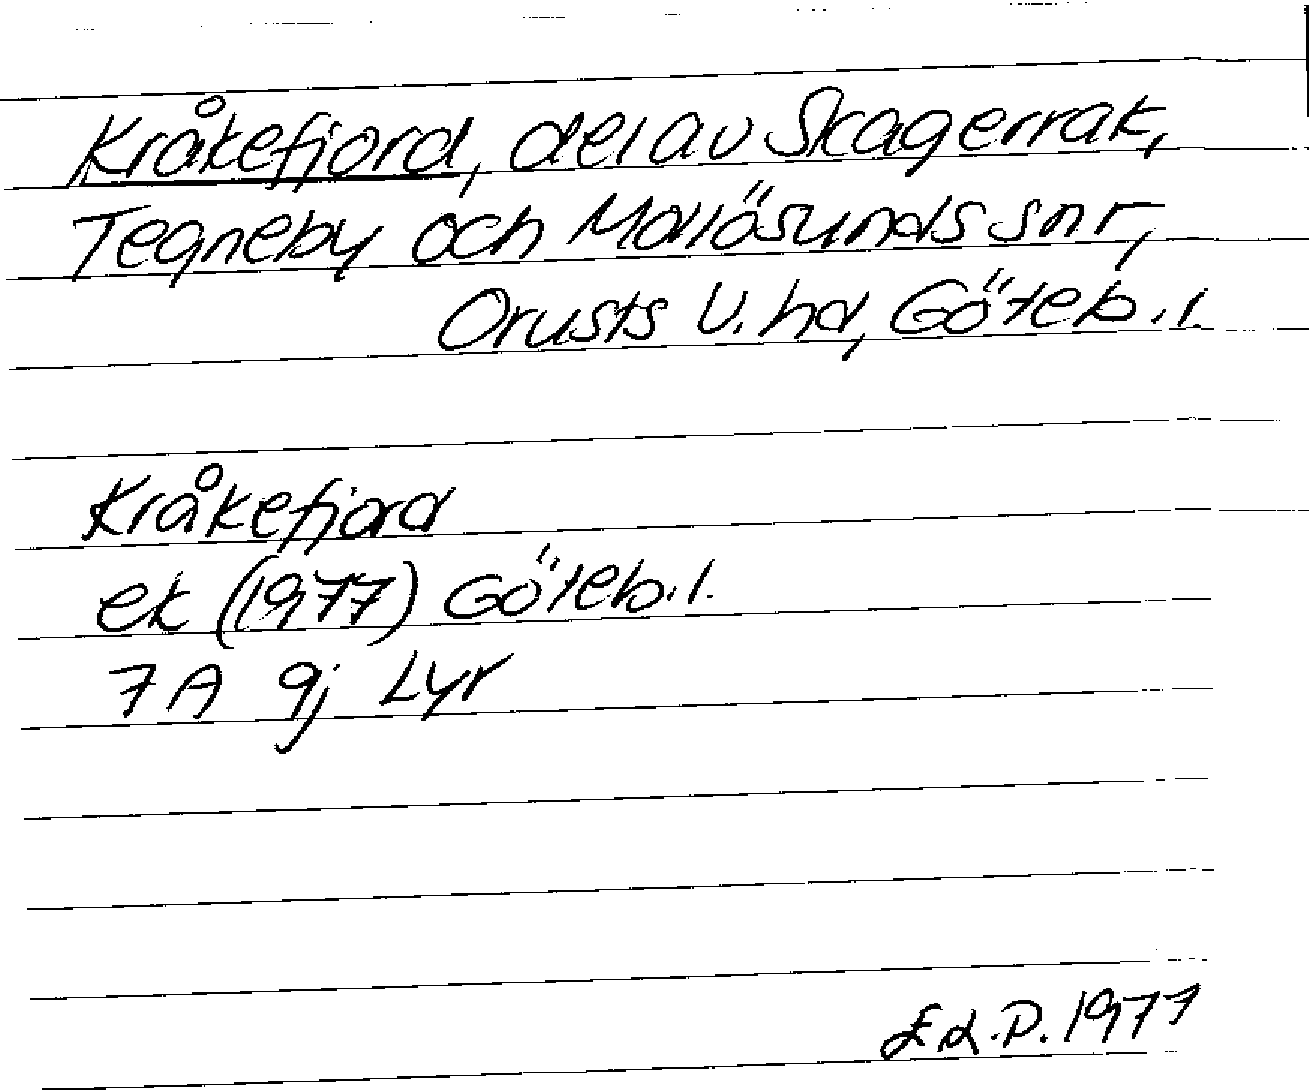 Kråkefjord, del av Skagerrak,
Tegneby och Mollösunds snr,
Orusts V. hd, Göteb. l.
Kråkefjord
ek (1977) Göteb. l.
7A 9j Lyr
1977